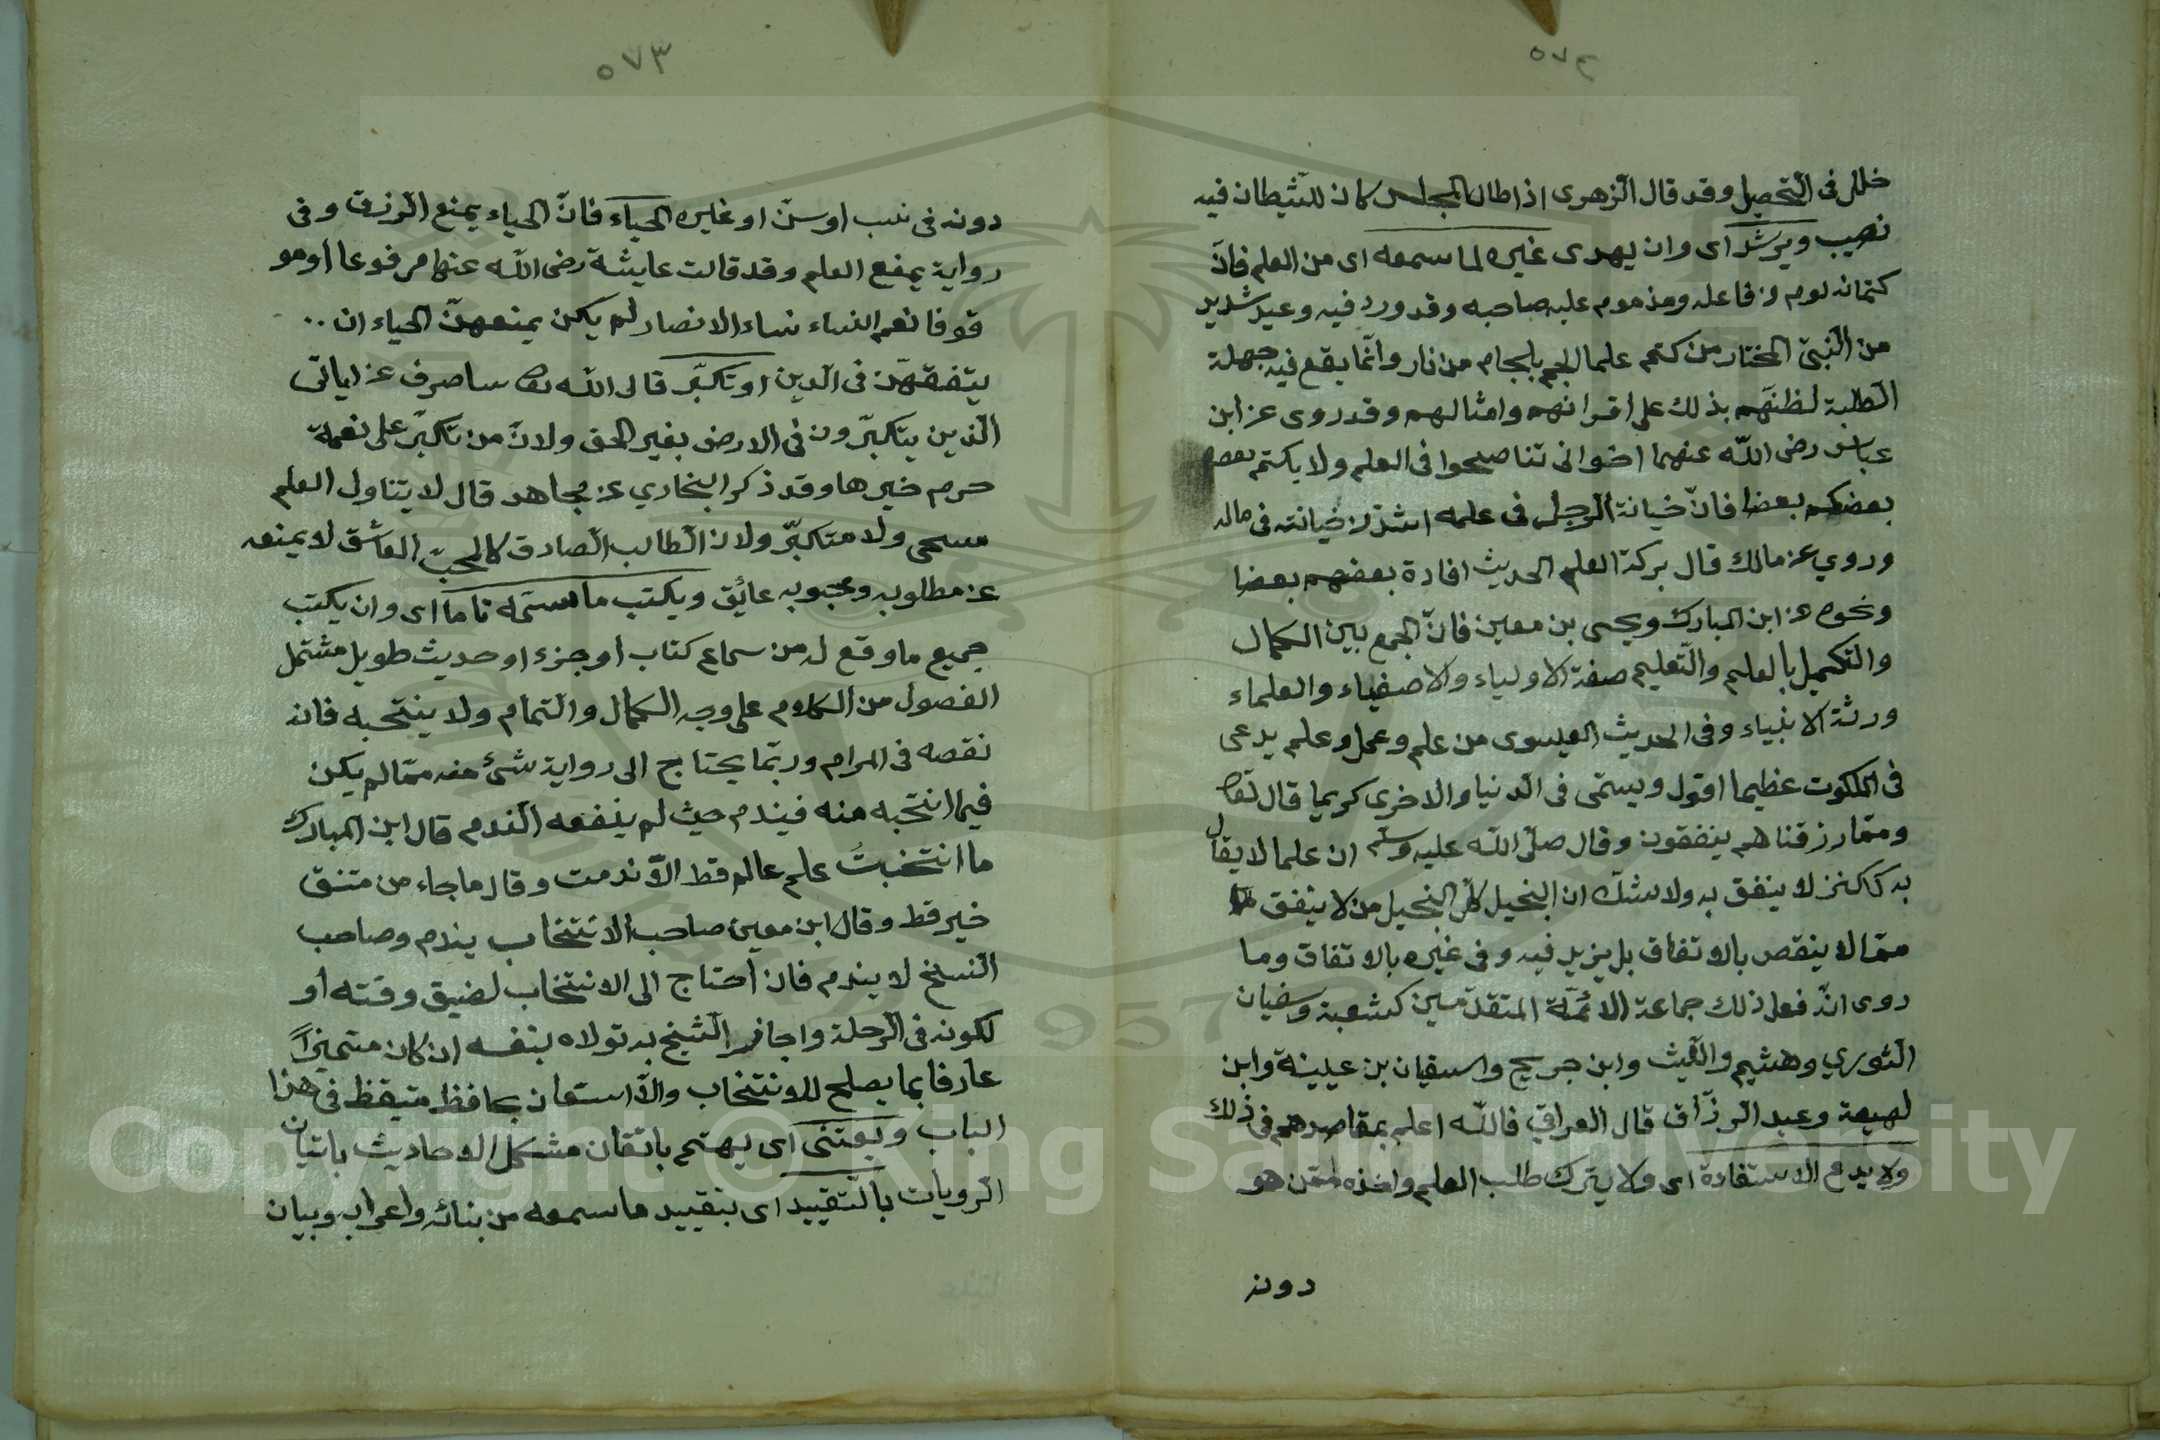 ٥٧٢
خلل فى التّحصيل وقد قال الزّهرى اذا طال المجلس كان للشّيطان فيه
نصيب ويرشد اى وان يهدى غيره لما سمعه اى من العلم فانّ
كتمانه لوم من فاعله ومذموم عليه صاحبه وقد ورد فيه وعيد شديد
من النّبىّ المختار من كتم علما الجم بلجام من نار وانّما يقع فيه جهلة
الطّلبة لظنّهم بذلك على اقرانهم وامثالهم وقد روى عن ابن
عباس رضى اللّه عنهما اخوانى تناصحوا فى العلم ولا يكتم بعضه
بعضكم بعضا فانّ خيانة الرجل فى علمه اشدّ من خيانته فى ماله
وروي عن مالك قال بركة العلم الحديث افادة بعضهم بعضا
ونحوه عن ابن المبارك ويحيى بن معين فانّ الجمع بين الكمال
والتكميل بالعلم والتّعليم صفة الاولياء والاصفياء والعلماء
ورثة الانبياء وفى الحديث العيسوى من علم وعمل وعلم يدعى
فى الملكوت عظيما اقول ويسمّى فى الدنيا والاخرى كريما قال تعا
وممّا رزقناهم ينفقون وقال صلّى اللّه عليه وسلم ان علما لا يقال
به ككنز لا ينفق به ولا شكّ ان البخيل كل البخيل من لا ينفق
ممّا لا ينقص بالاتفاق بل يزيد فيه وفى غيره بالاتفاق وما
روى انّه فعل ذلك جماعة الائمّة المتقدّمين كشعبة وسفيان
الثوري وهشيم واللّيث وابن جريج واسفيان بن عيينة وابن
لهيعة وعبد الرزّاق قال العراقي فاللّه اعلم بمقاصدهم فى ذلك
ولا يدع الاستفادة اى ولا يترك طلب العلم واخذه ممّن هو
دونه
٥٧٣
دونه فى نسب او سنّ او غيره الحياء فانّ الحياء يمنع الرّزق وفى
رواية يمنع العلم وقد قالت عايشة رضى اللّه عنها مرفوعا أو مو
قوفا نعم النساء نساء الانصار لم يكن يمنعهنّ الحياء ان ..
يتفقهّن فى الدين او تكبّر قال اللّه تعا ساصرف عن اياتى
الّذين يتكبّرون فى الارض بغير الحق ولانّ من تكبّر على نعمة
حرم خيرها وقد ذكر البخاري عن مجاهد قال لا يتناول العلم
مستحى ولا متكبّر ولان الطالب الصادق كالمحبّ العاشق لا يمنعه
عن مطلوبه ومحبوبه عائق ويكتب ما سمعه تاما اى وان يكتب
جميع ما وقع له من سماع كتاب او جزء او حديث طويل مشتمل
الفصول من الكلام على وجه الكمال والتمام ولا ينتخبه فانه
نقصه فى المرام وربّما يحتاج الى رواية شئ منه ممّا لم يكن
فيما انتخبه منه فيندم حيث لم ينفعه النّدم قال ابن المبارك
ما انتخبتُ علم عالم قط الاّ ندمت وقال ما جاء من منتق
خير قط وقال ابن معين صاحب الانتخاب يندم وصاحب
النسخ لا يندم فان أحتاج الى الانتخاب لضيق وقته أو
لكونه فى الرّحلة واجاز الشّيخ به تولاه بنفسه ان كان متميّزاً
عارفا بما يصلح للانتخاب والاّ استعان بحافظ متيقظ فى هذا
الباب ويعتنى اى يهتم باتقان مشكل الاحاديث باتيان
الرّويات بالتّقييد اى بتقييد ما سمعه من بنائه واعرابه وبيان
Copyright © King Saud University
1957